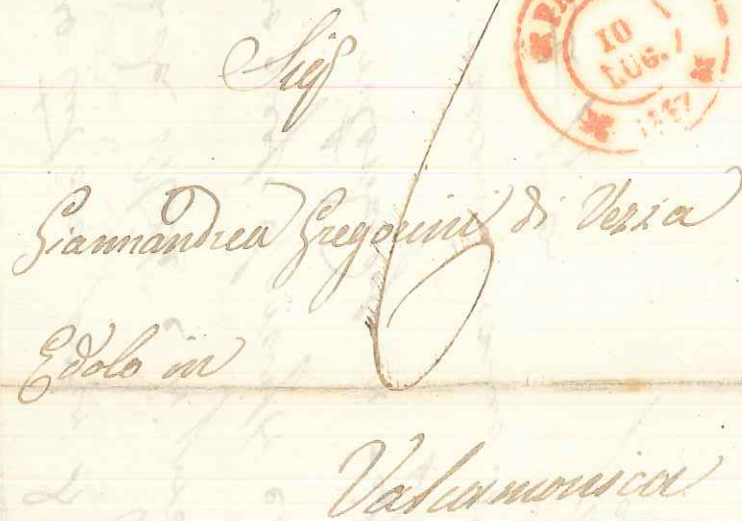 10
LUG.
1847
Sigr
Giannandrea Gregorini di Vezza
6
Edolo in
Valcamonica